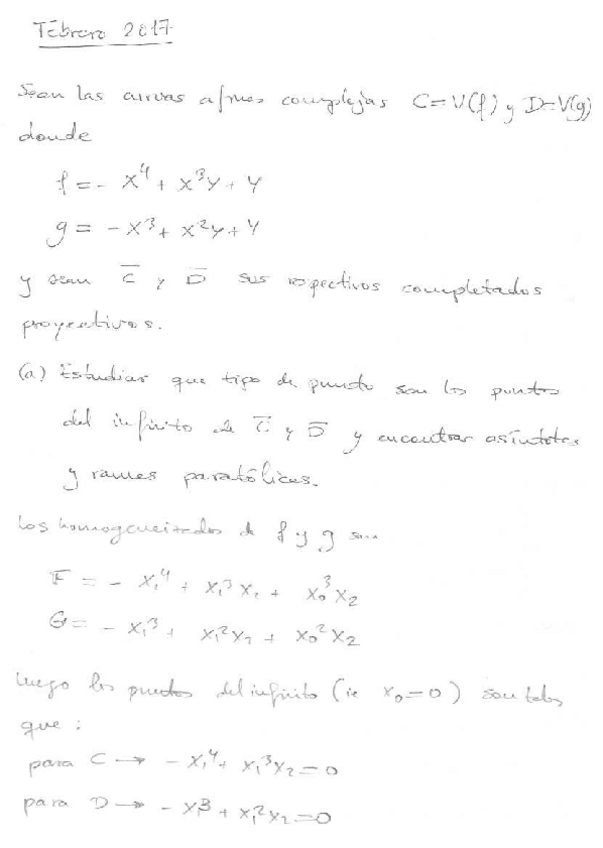 Febrero 2017
Sean las curvas afines complejas C=V(f) y D=V(g)
donde
f = - X⁴ + X³Y + Y
g = - X³ + X²Y + Y
y sean C̅ y D̅ sus respectivos completados
proyectivos.
(a) Estudiar que tipo de punto son los puntos
del infinito de C̅ y D̅ y encontrar asíntotas
y ramas parabólicas.
Los homogeneizados de f y g son
F = - X₁⁴ + X₁³X₂ + X₀³X₂
G = - X₁³ + X₁²X₂ + X₀²X₂
Luego los puntos del infinito (ie X₀=0) son tales
que :
para C → - X₁⁴ + X₁³X₂ = 0
para D → - X₁³ + X₁²X₂ = 0